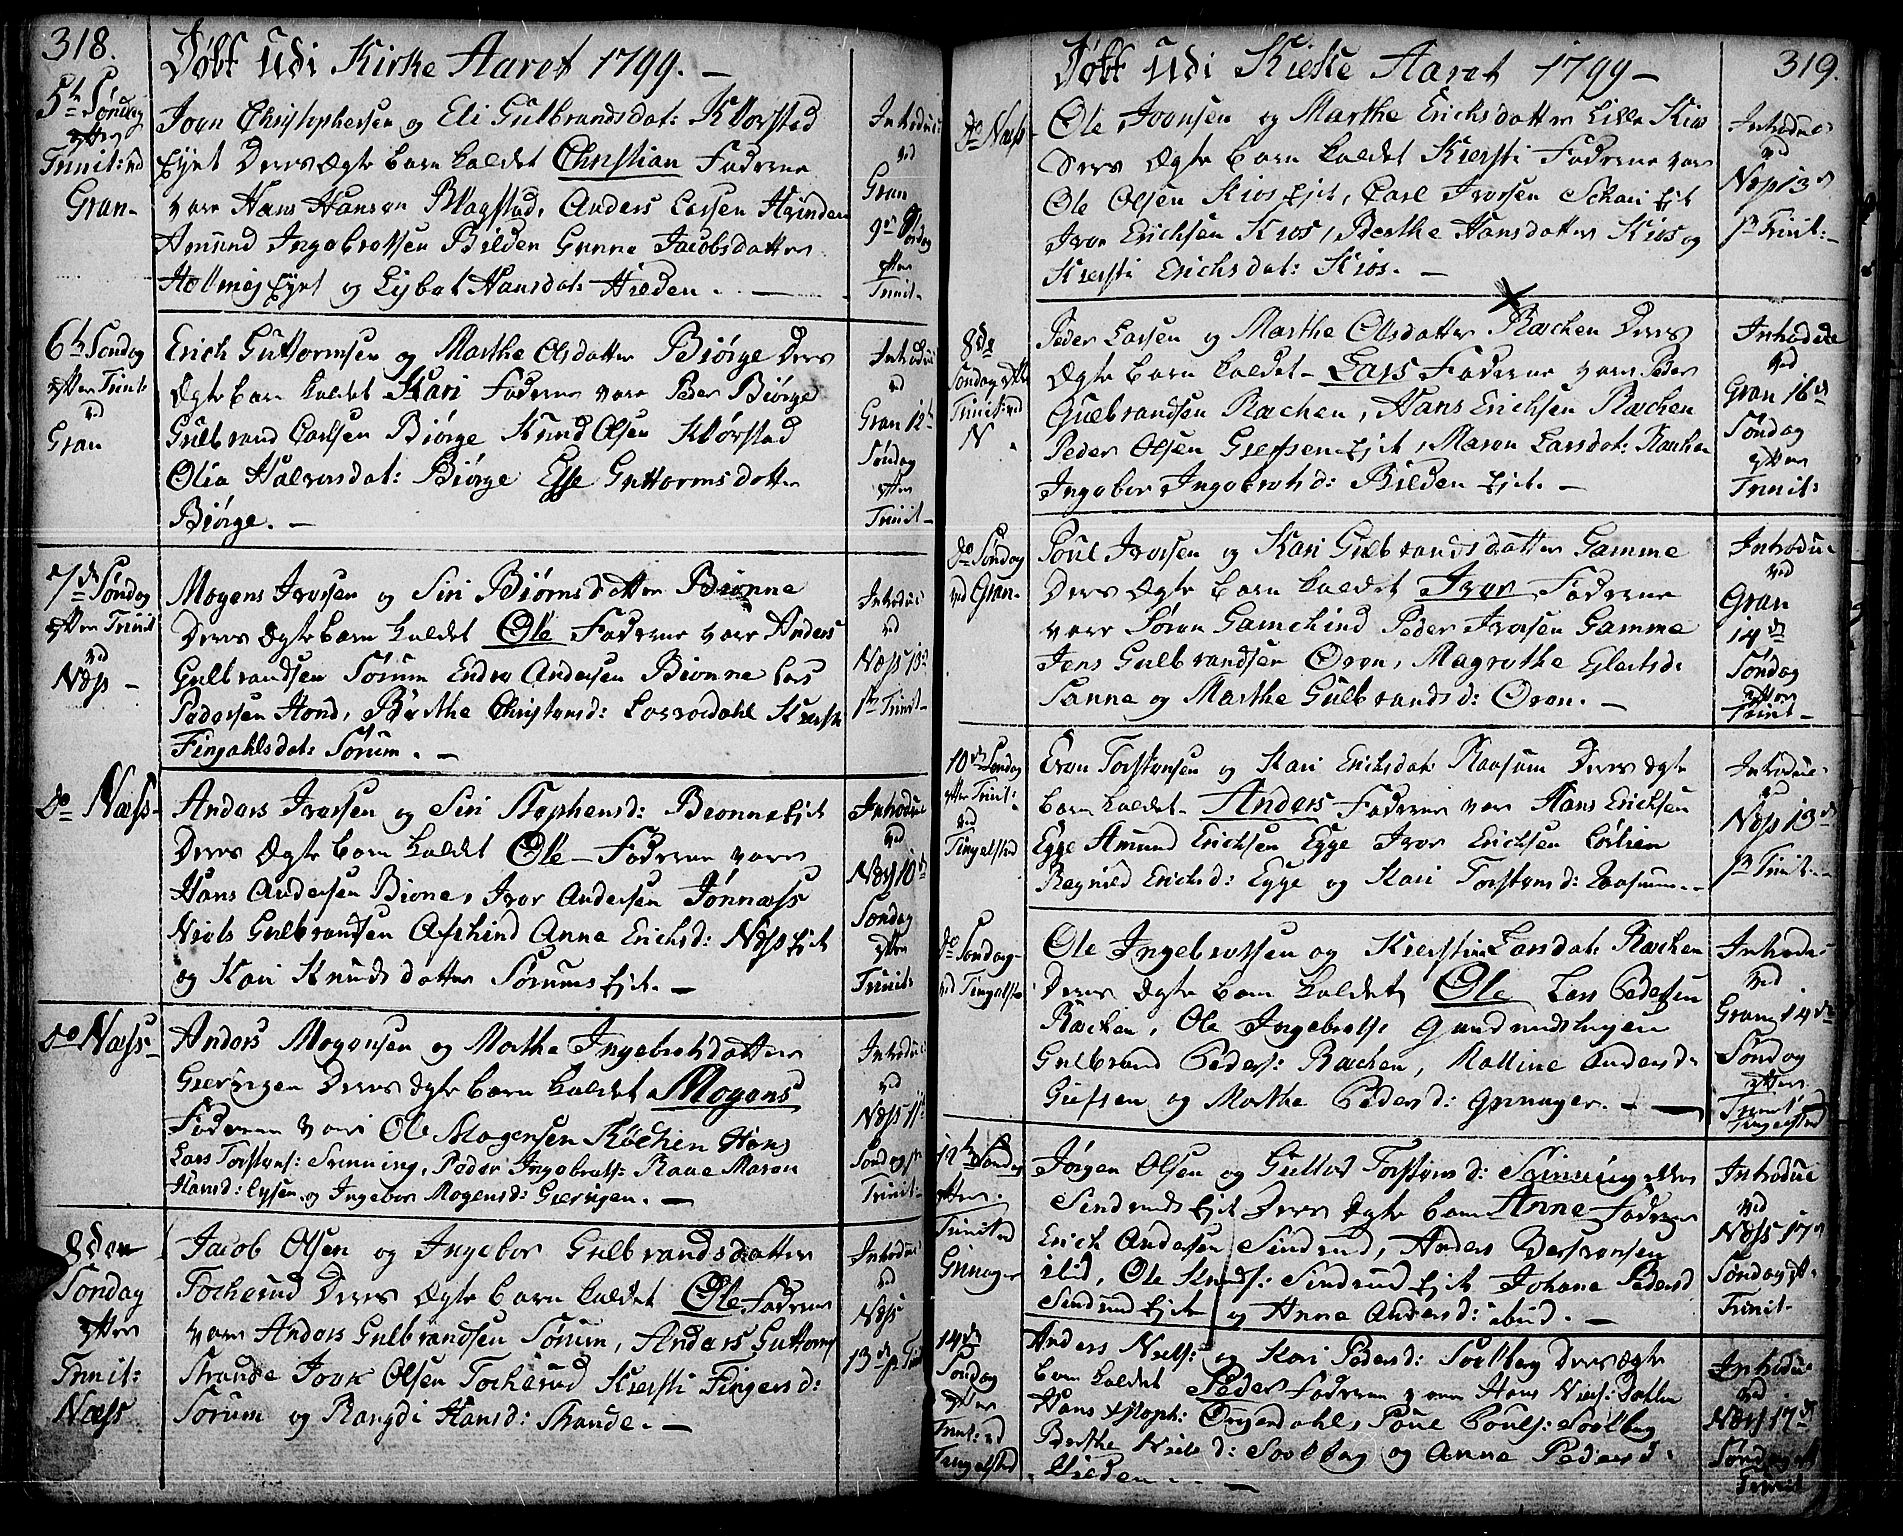 318.
Døbt Udi Kirke Aaret 1799. —
5te Søndag
efter
Trinit: ved
Gran —
Iven Christophersen og Eli Gulbrandsdat: Klørstad
Eyet Deres Ægte barn kaldet Christian Fadderne
vare Hans Hansen Blagstad, Anders Larsen Hvinden
Amund Ingebretsen Bilden Gunne Jacobsdatter
Eyet og Lisbet Hansdat: Hilden. —
Introdue:
ved
Gran
9de Søndag
efter
Trinit.
6te Søndag
efter Trinit:
ved
Gran
Erich Guttormsen og Marthe Olsdatter Biørge Deres
Ægte barn kaldet Kari Fadderne vare Peder Biørge
Gulbrand Carlsen Biørge Knud Olsen Klørstad
Olia Halvorsdat: Biørge Guttormsdatter
Biørge. —
Introdue:
ved
Gran 12te
Søndag
efter
Trinit —
7de Søndag
efter Trinit
ved
Næss —
Mogens Iversen og Siri Biørnsdatter Bionne
Deres Ægte barn kaldet Ole Fadderne vare Anders
Gulbrandsen Sørum Endre Andersen Bionne Lars
Pedersen Hond, Birthe Christensd:
Fingahlsdat: Sørum. —
Introdue:
ved
Næss 13de
p Trinit —
do Næss —
Anders Iversen og Siri Stephensd: Bionne Ejet
Deres Ægte barn kaldet Ole — Fadderne vare
Hans Andersen Bione, Iver Andersen Jønnæss
Niels Gulbrandsen Anne Erichsd: Næss Ejet
og Kari Knudsdatter Sørums Ejet. —
Introdue
ved
Næss 10de
Søndag
efter
Trinit:
do Næss —
Anders Mogensen og Marthe Ingebretsdatter
Deres Ægte barn kaldet Mogens
Fadderne vare Ole Mogensen Røchen Hans
Lars Torstens: Peder Ingebrets: Raae Maren
Hansd: og Ingebor Mogensd: —
Introdue:
ved
Næss 11te
Søndag p
Trinit —
8den
Søndag
efter
Trinit:
Næss
Jacob Olsen og Ingebor Gulbrandsdatter
Tocherud Deres Ægte barn kaldet Ole Fadderne
vare Anders Gulbrandsen Sørum, Anders Guttorms
Strande Olsen Tocherud Kiersti Fingersd:
Sørum og Rangdi Hansd: Strande. —
Introdue:
ved
Næss
13de p Trinit
319.
Døbt Udi Kirke Aaret 1799 —
do Næss
Ole Iversen og Marthe Erichsdatter Lille Kios
Deres Ægte barn kaldet Kiersti Fadderne vare
Ole Olsen Kios Ejet, Carl Iversen Schari Ejet
Iver Erichsen Kios, Berthe Hansdatter Kios og
Kiersti Erichsdat: Kios. —
Introdue:
ved
Næss 13de
p Trinit: —
8de
Søndag efter
Trinit: ved
N
Peder Larsen og Marthe Olsdatter Rachen Deres
Ægte barn kaldet — Lars Fadderne vare Peder
Gulbrandsen Rachen, Hans Erichsen Rachen
Peder Olsen Grefsen Ejet, Maren Larsdat: Rachen
Ingebor Ingebretsd: Bilden Ejet. —
Introdue
ved
Gran 16de
Søndag
efter
Trinit:
do Søndag
ved Gran —
Poul Iversen og Kari Gulbrandsdatter Gamme
Deres Ægte barn kaldet Iver Fadderne
vare Søren Gamchind Peder Iversen Gamme
Jens Gulbrandsen Oren, Magrethe
Sanne og Marthe Gulbrandsd: Oren. —
Introdue
ved
Gran
14de
Søndag
efter
Trinit —
10de Søndag
efter Trinit:
ved
Tingelsted
Even Torstensen og Kari Erichsdat: Raasum Deres Ægte
barn kaldet — Anders Fadderne vare Hans Erichsen
Egge Amund Erichsen Egge Iver Erichsen
Ragnild Erichsd: Egge og Kari Torstensd: Raasum. —
Introdue:
ved
Næss 13de
p Trinit. —
do Søndag —
ved Tingelsted
Ole Ingebretsen og Kierstie Larsdat: Rachen
Deres Ægte barn kaldet Ole Lars Pedersen
Rachen, Ole Ingebrets:
Gulbrand Peders: Rachen, Andersd:
og Marthe Pedersd: Grinager. —
Introdue:
ved
Gran 14de
Søndag
efter
Trinit
Tingelsted
12te Søndag
efter
Trinit: ved
Grinager
Jørgen Olsen og Torstensd: eller
Sindrud Ejet Deres Ægte barn Anne Fadderne
Erich Andersen Sindrud, Anders
Ole Knuds: Sindrud Ejet Johane Pedersd
Sindrud Ejet og Anne Andersd: —
Introdue
ved
Næss 17de
Søndag eft:
Trinit —
14de
Søndag
efter
Trinit: ved
Tingelsted
Anders Niels: og Kari Pedersd: Soelberg Deres Ægte
barn kaldet Peder Fadderne vare Hans Niels:
Hans Poul Pouls: Soelberg
Berthe Nielsd: Soelberg og Anne Pedersd:
Hilden. —
Introdue:
ved
Næss 17de
Søndag eft
Trinit